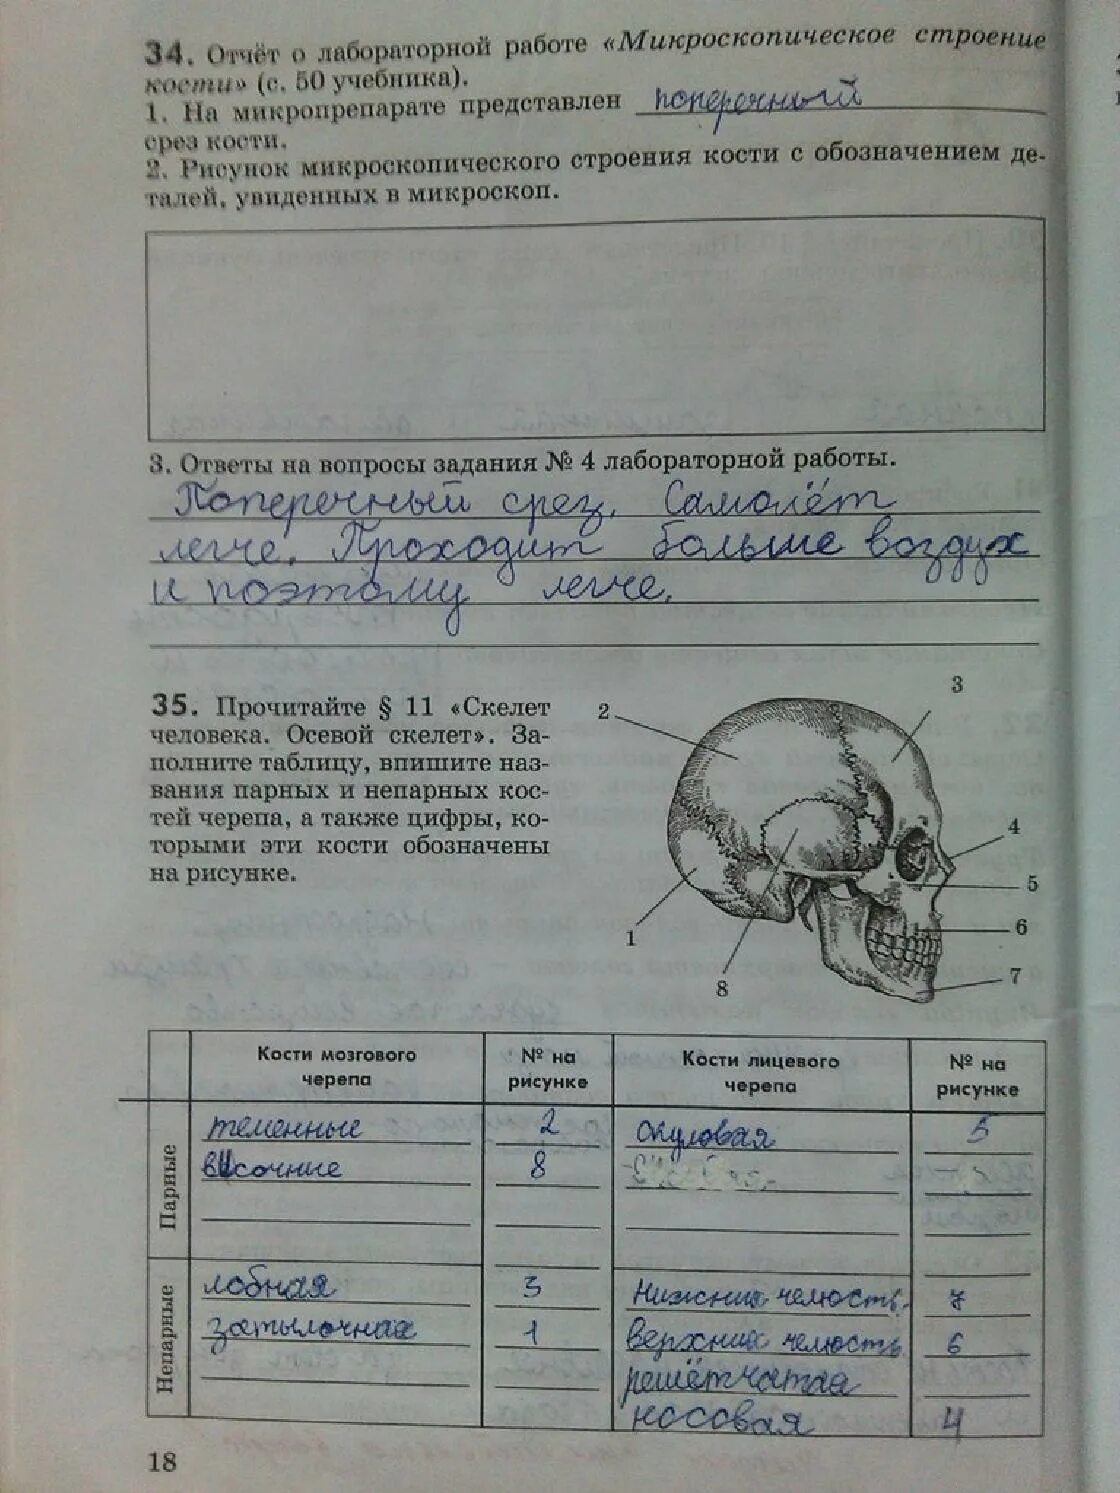 34. Отчёт о лабораторной работе «Микроскопическое строение
кости» (с. 50 учебника).
1. На микропрепарате представлен поперечный
срез кости.
2. Рисунок микроскопического строения кости с обозначением де-
талей, увиденных в микроскоп.
3. Ответы на вопросы задания № 4 лабораторной работы.
Поперечный срез. Самолёт
легче. Проходит больше воздух
и поэтому легче.
35. Прочитайте § 11 «Скелет
человека. Осевой скелет». За-
полните таблицу, впишите наз-
вания парных и непарных кос-
тей черепа, а также цифры, ко-
торыми эти кости обозначены
на рисунке.
3
2
4
5
6
1
7
8
Кости мозгового черепа № на рисунке Кости лицевого черепа № на рисунке
Парные
теменные 2 скуловая 5
височние 8
Непарные
лобная 3 Нижния челюсть 7
затылочная 1 верхния челюсть 6
решётчатая
носовая 4
18